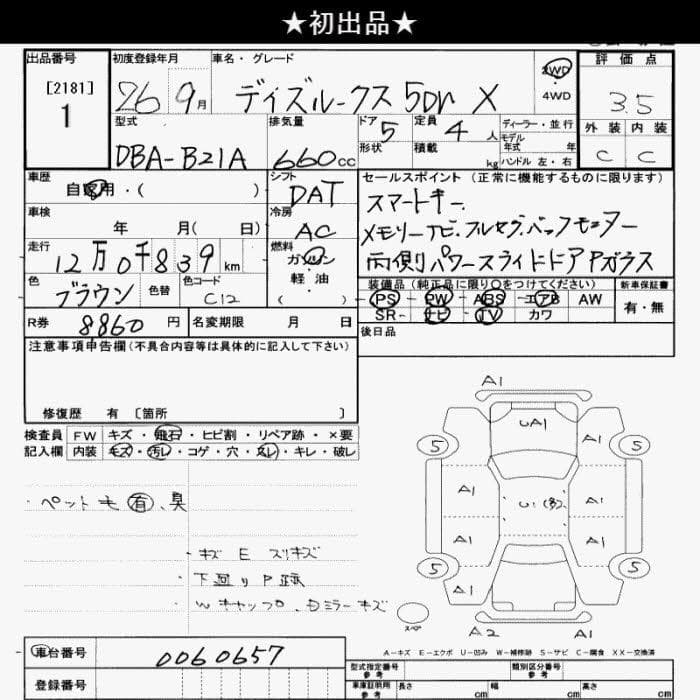 ★初出品★
出品番号 初度登録年月 車名・グレード 評価点
[2181]
1
26 9月 デイズルークス 5Dr X
2WD・4WD
3.5
外装 内装
C C
型式 排気量 ドア 定員 ディーラー・並行
DBA-B21A 660cc 5 4人
形状 積載 kg
モデル年式 年
ハンドル 左・右
車歴 シフト セールスポイント(正常に機能するものに限ります)
自家用・( ) DAT
スマートキー
車検 冷房
年 月( 日) AC
メモリーナビ.フルセグ.バックモニター
走行 燃料
12万0千839km ガソリン・軽油
( )
両側パワースライドドア Pガラス
色 色替 色コード
ブラウン C12
装備品(純正品に限り○をつけてください) 新車保証書
PS・PW・ABS・エアB AW 有・無
SR・ナビ・TV・カワ
R券 8860円 名変期限 月 日
後日品
注意事項申告欄(不具合内容等は具体的に記入して下さい)
修復歴 有 〔箇所 〕
検査員記入欄 FW キズ・飛石・ヒビ割・リペア跡・×要
内装 キズ・汚レ・コゲ・穴・スレ・キレ・破レ
・ペット毛 有.臭
・キズ E スリキズ
・下廻りP跡
A1
UA1
A1
5 5
A1 A1
A1 A1
5 5
A1 A1
スペア
A2 A1
A-キズ E-エクボ U-凹み W-補修跡 S-サビ C-腐食 XX-交換済
車台番号 0060657
登録番号
型式指定番号 参考 類別区分番号 参考
車庫証明用 参考 長さ cm 幅 cm 高さ cm